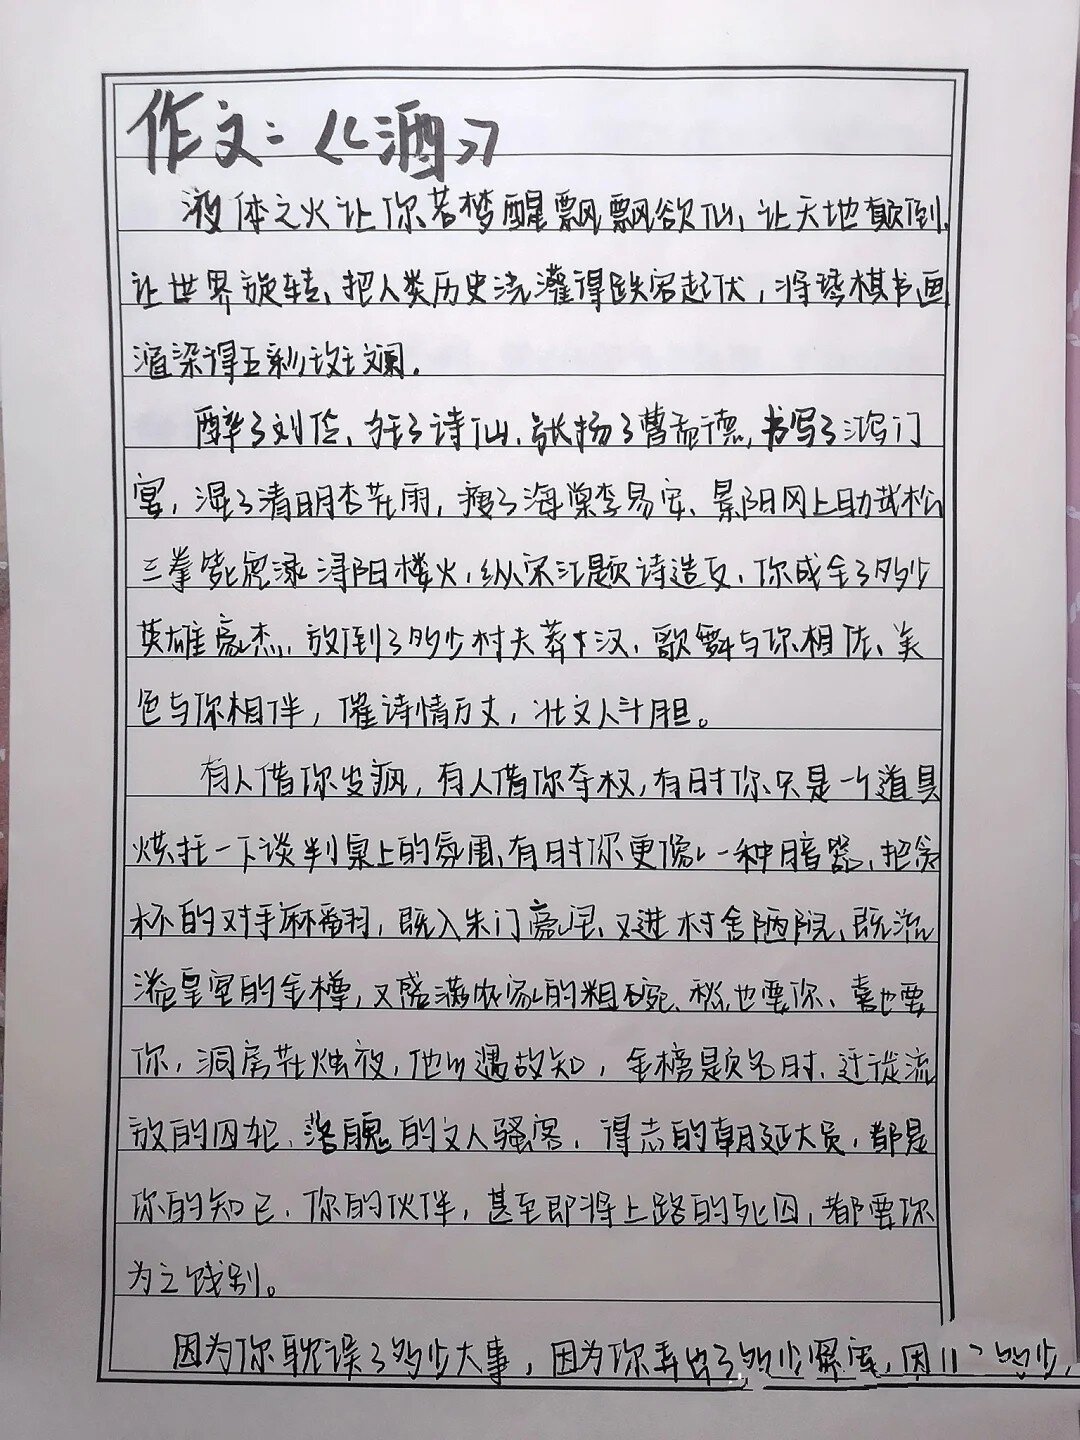 作文：《酒》
液体之火让你若梦醒飘飘欲仙，让天地颠倒，
让世界旋转、把人类历史浇灌得跌宕起伏，将琴棋书画
渲染得五彩斑斓.
醉了刘伶、狂了诗仙、张扬了曹孟德，书写了鸿门
宴，湿了清明杏花雨，瘦了海棠李易安、景阳冈上助武松
三拳毙浔阳楼火，纵宋江题诗造反、你成全了多少
英雄豪杰、放倒了多少村夫莽汉、歌舞与你相依、美
色与你相伴，催诗情万丈，壮文人斗胆。
有人借你发疯，有人借你夺权，有时你只是一个道具
烘托一下谈判桌上的氛围、有时你更像一种暗器、把贪
杯的对手麻翻，既入朱门豪，又进村舍陋院、既流
溢皇室的金樽，又盛满农家的粗碗、愁也要你、喜也要
你，洞房花烛夜，他乡遇故知，金榜题名时、迁徙流
放的囚犯、落魄的文人骚客，得志的朝廷大员，都是
你的知己、你的伙伴，甚至即将上路的死囚，都要你
为之饯别。
因为你耽误了多少大事，因为你弄出了多少，因多少